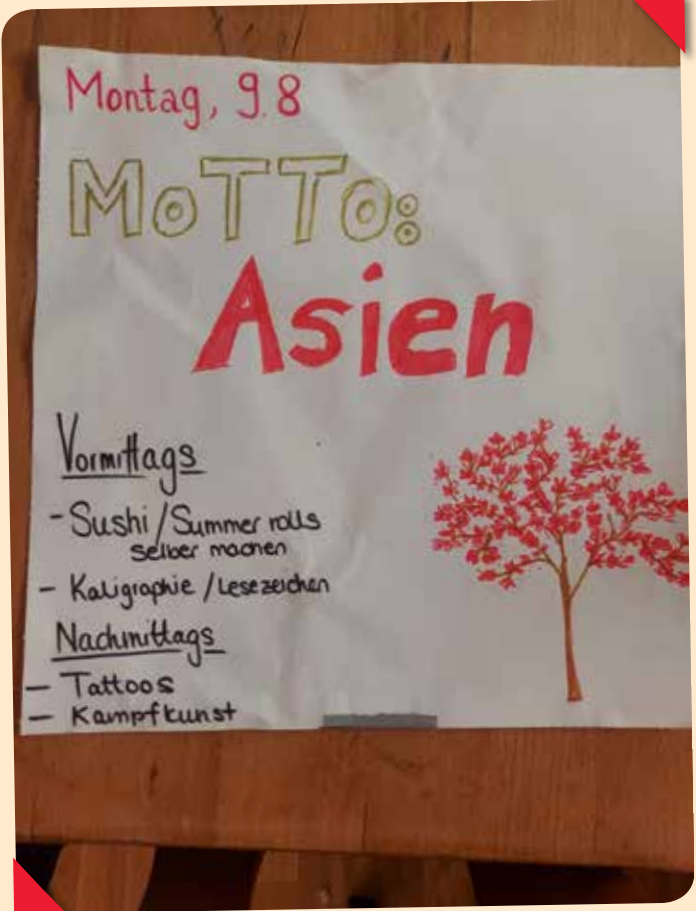 Montag, 9.8
MoTTo:
Asien
Vormittags
- Sushi / Summer rolls
selber machen
- Kaligraphie / Lesezeichen
Nachmittags
- Tattoos
- Kampfkunst